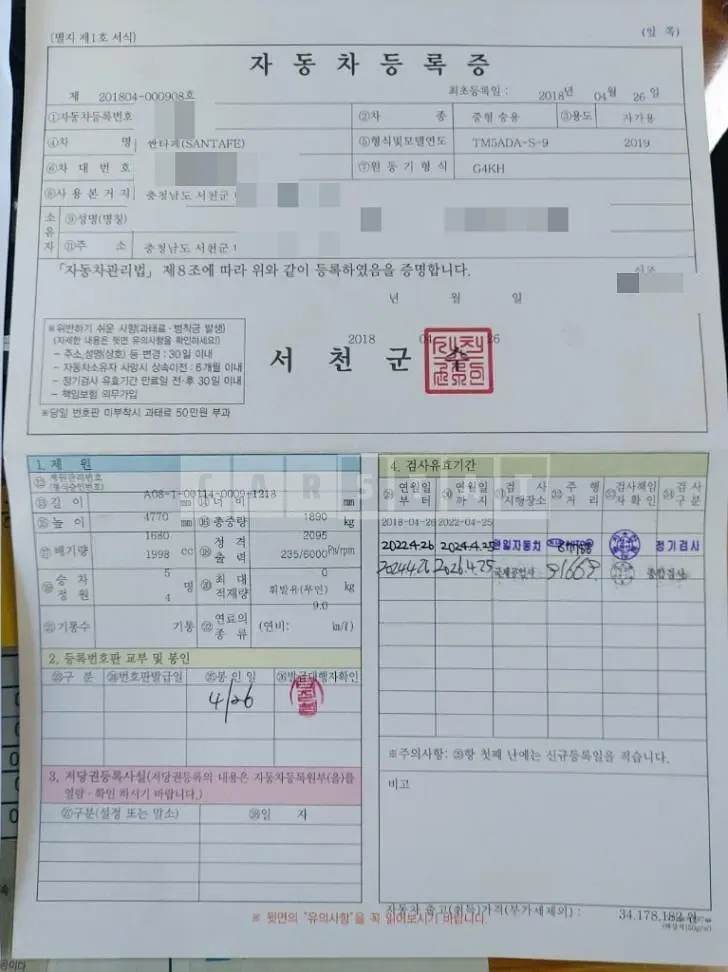 [별지 제1호 서식)
(앞 쪽)
자 동 차 등 록 증
제 201804-000908호
최초등록일 : 2018년 04월 26일
①자동차등록번호
②차 종 중형 승용 ③용도 자가용
④차 명 싼타페(SANTAFE)
⑤형식및모델연도 TM5ADA-S-9 2019
⑥차 대 번 호
⑦원 동 기 형 식 G4KH
⑧사 용 본 거 지 충청남도 서천군
소유자
⑨성명(명칭)
⑪주 소 충청남도 서천군
「자동차관리법」 제8조에 따라 위와 같이 등록하였음을 증명합니다.
년 월 일
2018 04 26
※위반하기 쉬운 사항(과태료·범칙금 발생)
(자세한 내용은 뒷면 유의사항을 확인하세요!)
- 주소,성명(상호) 등 변경 : 30일 이내
- 자동차소유자 사망시 상속이전 : 6개월 이내
- 정기검사 유효기간 만료일 전·후 30일 이내
- 책임보험 의무가입
※당일 번호판 미부착시 과태료 50만원 부과
서 천 군 수
CARSMART
1. 제 원
⑫제원관리번호
(형식승인번호)
A08-1-00114-0009-1218
⑬길 이 4770 mm ⑭너 비 1890 mm
⑮높 이 1680 mm ⑯총중량 2095 kg
⑰배기량 1998 cc ⑱정 격 출 력 235/6000 Ps/rpm
⑲승 차 정 원 5 명 ⑳최 대 적재량 0 kg
㉑기통수 4 기통 ㉒연료의 종 류 휘발유(무연) (연비: 9.0 km/ℓ)
2. 등록번호판 교부 및 봉인
㉓구 분 ㉔번호판발급일 ㉕봉 인 일 ㉖발급대행자확인
4/26
3. 저당권등록사실(저당권등록의 내용은 자동차등록원부(을)를
열람·확인 하시기 바랍니다.)
㉗구분(설정 또는 말소) ㉘일 자
4. 검사유효기간
㉙연월일 부터 ㉚연월일 까지 ㉛검 사 시행장소 ㉜주 행 거 리 ㉝검사책임 자확인 ㉞검 사 구분
2018-04-26 2022-04-25
2022.4.26 2024.4.25 원일자동차 정기검사
2024.4.26 2026.4.25 국제공업사 91669 종합검사
※주의사항: ㉙항 첫째 난에는 신규등록일을 적습니다.
비고
자동차 출고(취득)가격(부가세제외) : 34,178,182 원
※ 뒷면의 "유의사항"을 꼭 읽어보시기 바랍니다.